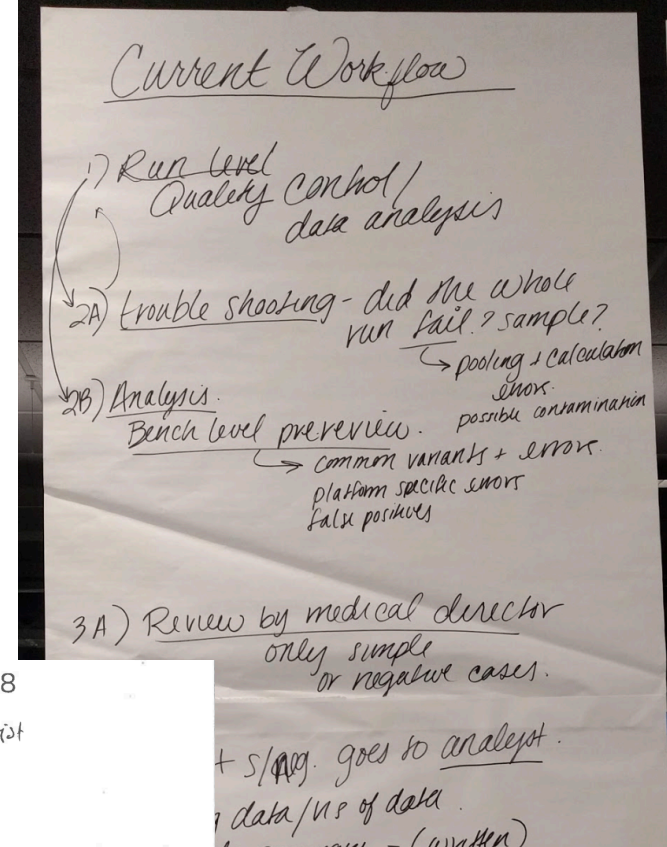 Current Workflow
1) Run level
Quality control/
data analysis
2A) trouble shooting - did the whole
run fail? sample?
pooling + calculation
errors.
possible contamination
2B) Analysis.
Bench level prereview.
common variants + errors.
platform specific errors
false positives
3A) Review by medical director
only simple
or negative cases.
8
ist
+ s/neg. goes to analyst.
data/ of data.
- (written)